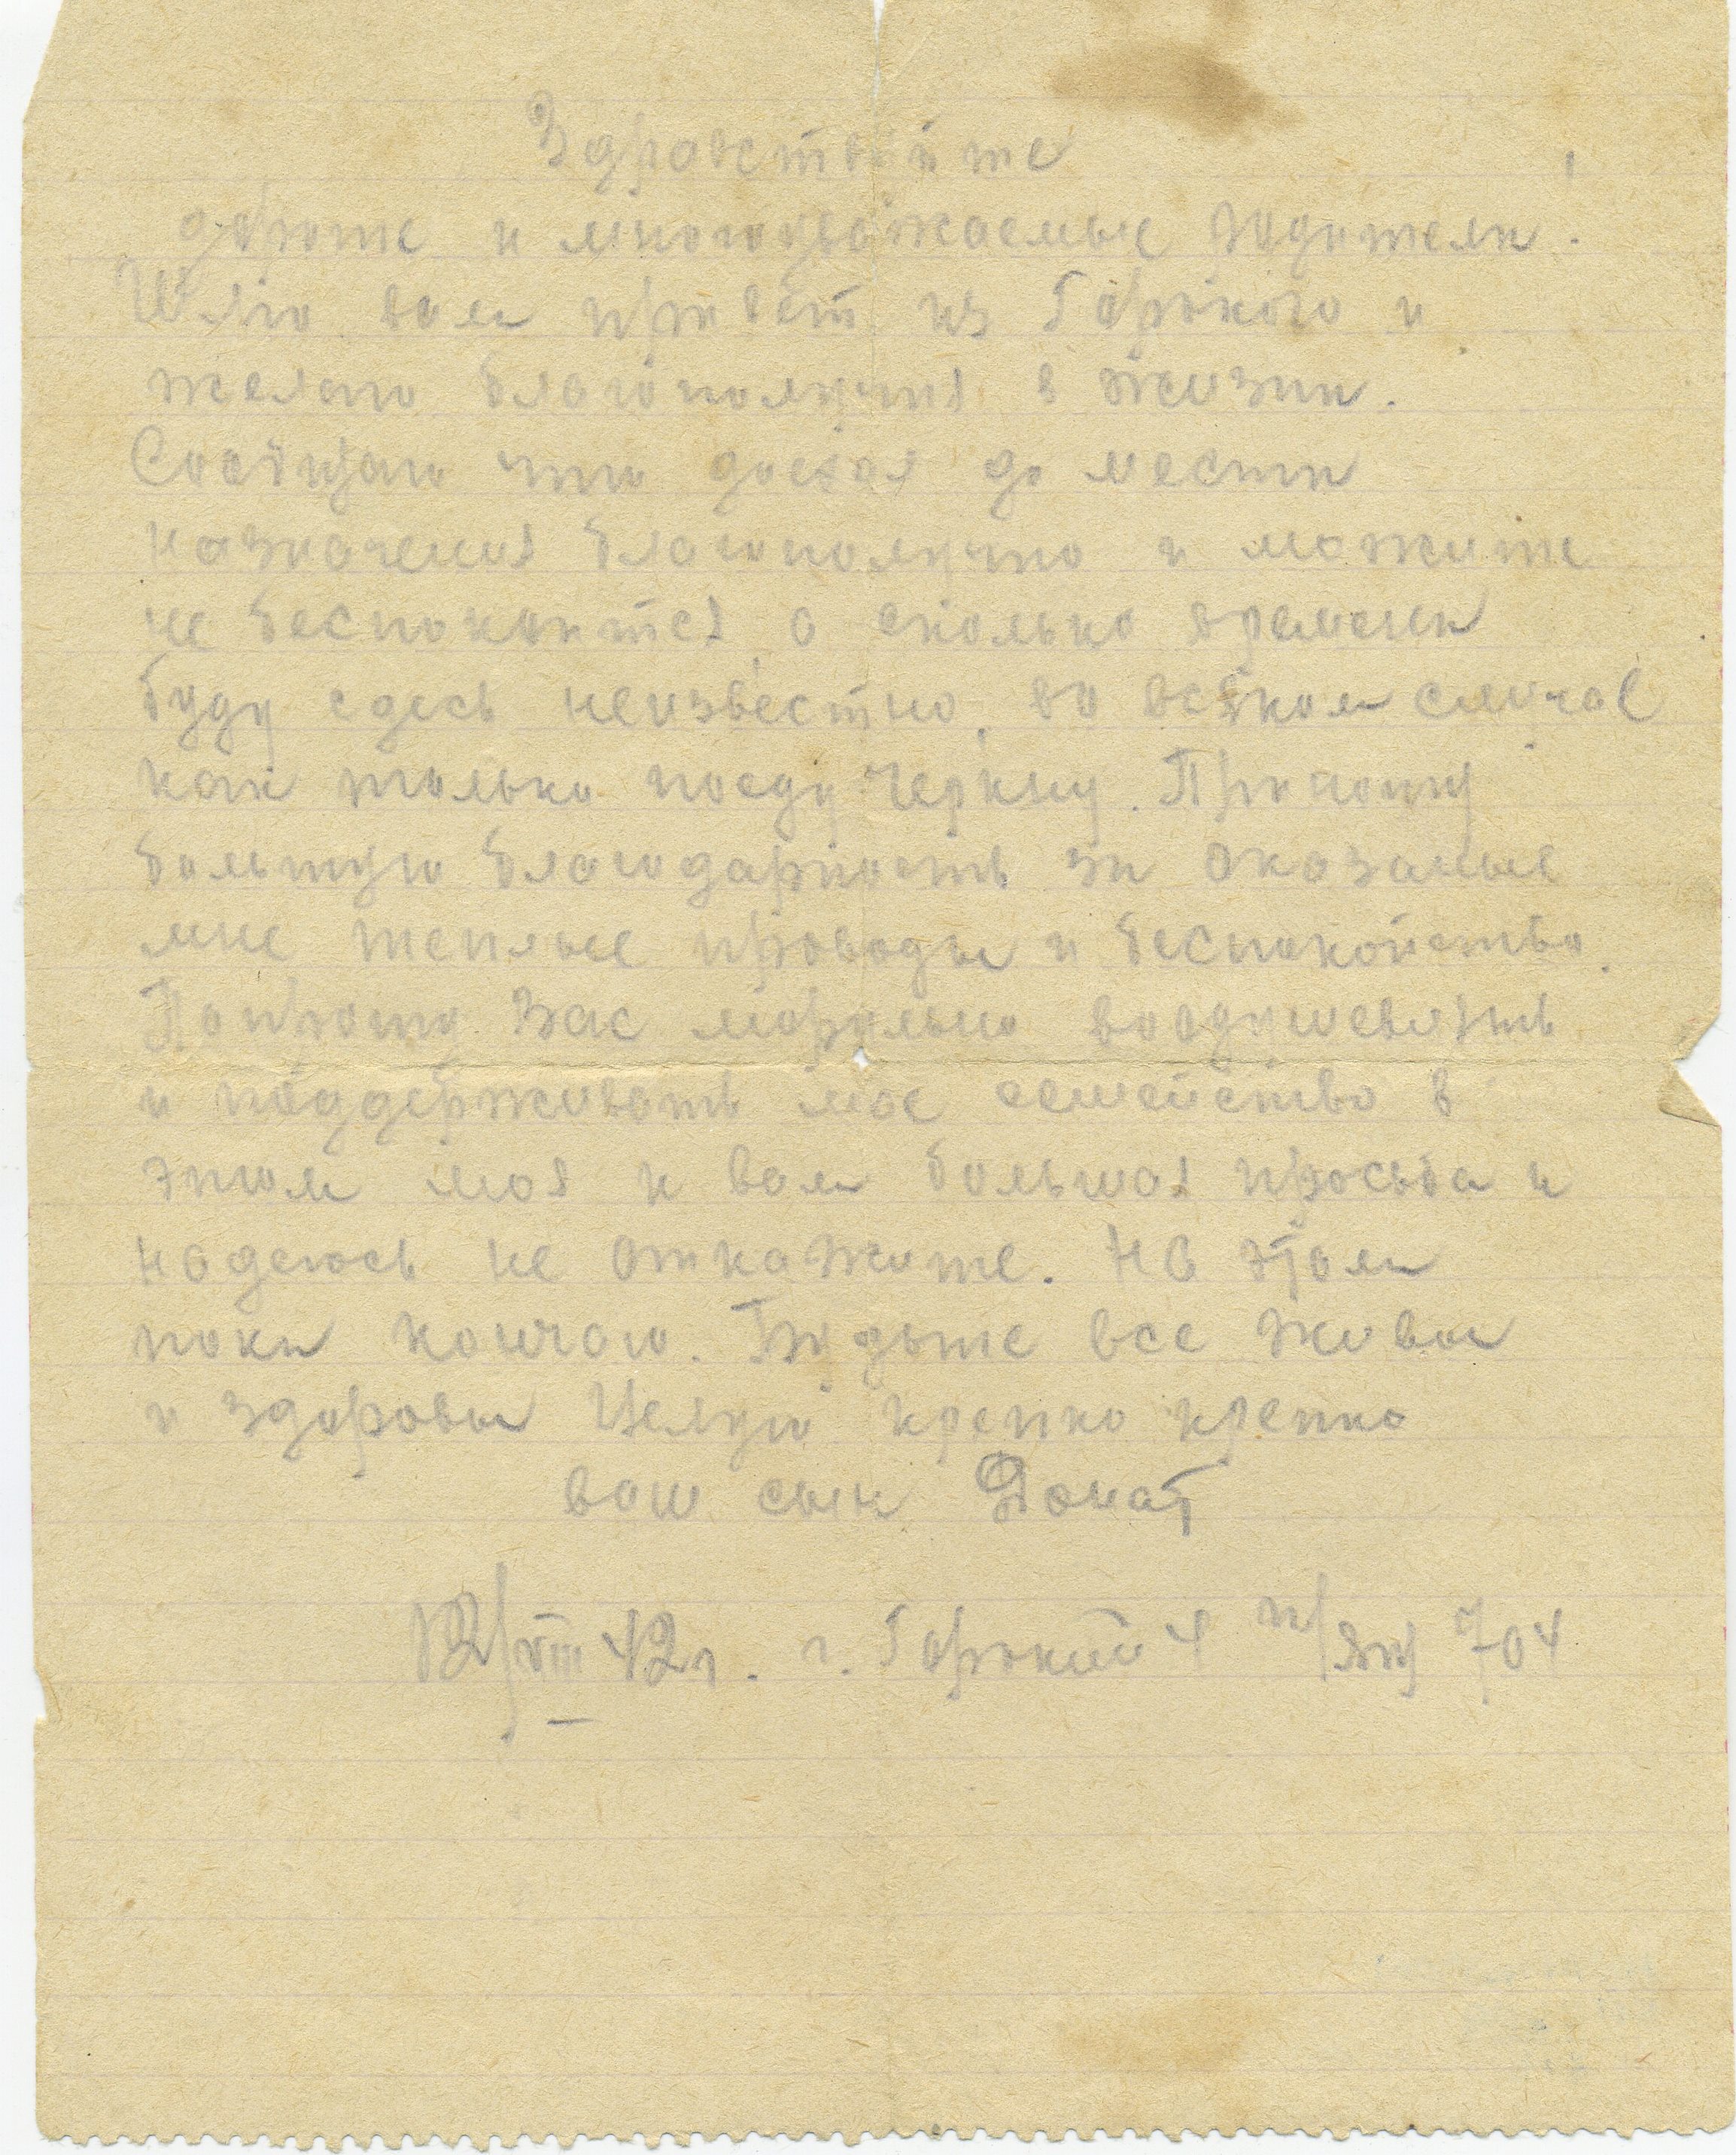 Здравствуйте
дорогие и многоуважаемые родители!
Шлю вам привет из Горького и
желаю благополучия в жизни.
Сообщаю что доехал до места
назначения благополучно и можите
не беспокоится, а сколько времени
буду сдесь неизвестно, во всяком случае
как только поеду черкну. Приношу
большую благодарность за оказаные
мне теплые проводы и беспокойство.
Попрошу Вас морально воодушевлять
и поддерживать мое семейство в
этом моя к вам большая просьба и
надеюсь не откажите. На этом
пока кончаю. Будьте все живы
и здоровы Целую крепко крепко
ваш сын Донат
12/VIII 42 г. г. Горький 4 п/ящ 704